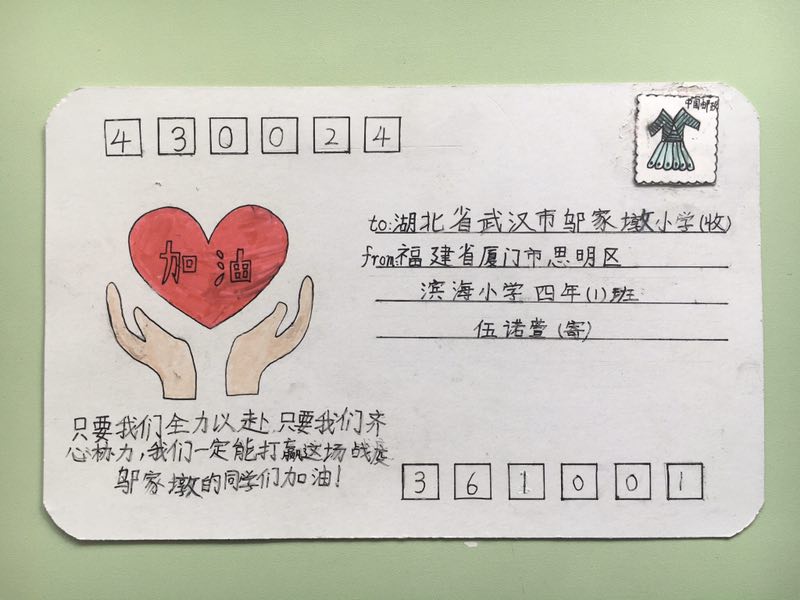 430024
中国邮政
to:湖北省武汉市邬家墩小学(收)
from:福建省厦门市思明区
滨海小学四年(1)班
伍诺萱(寄)
加油
只要我们全力以赴,只要我们齐
心协力,我们一定能打赢这场战疫
邬家墩的同学们加油!
361001